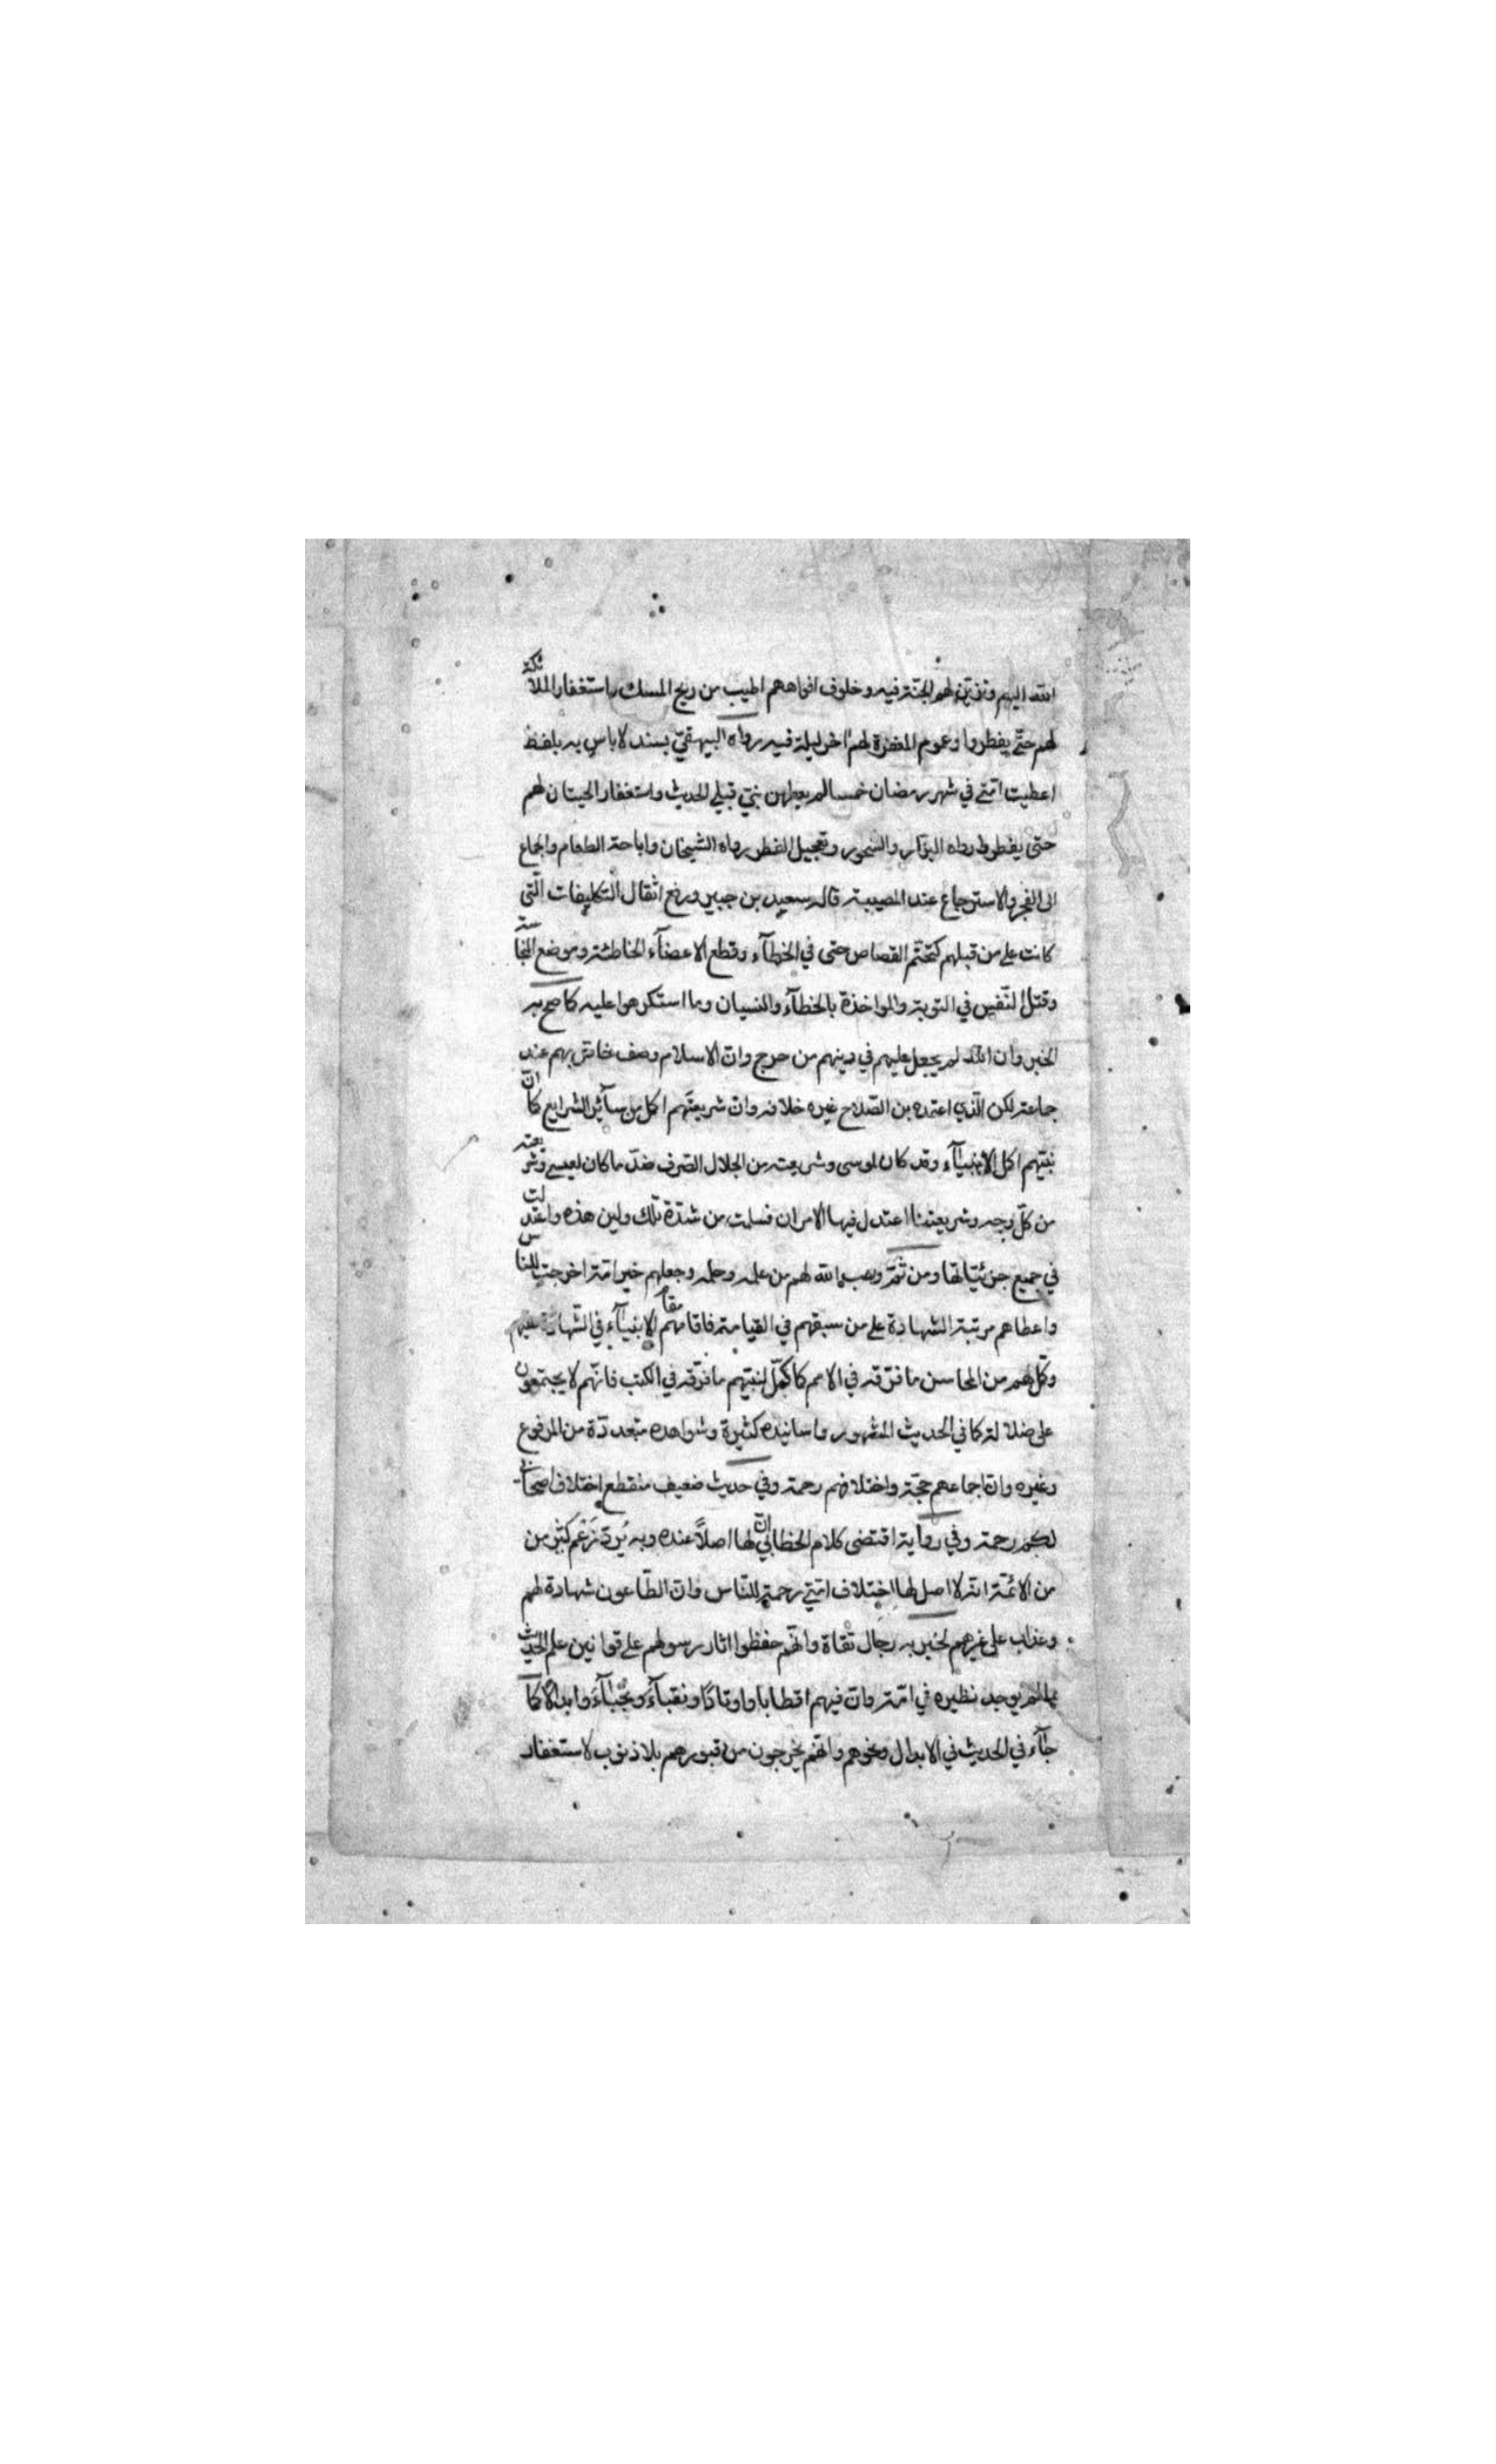 الله اليهم وتزيّن لهم الجنّة فيه وخلوف افواههم اطيب من ريح المسك واستغفار الملائكة
لهم حتّى يفطروا وعموم المغفرة لهم اخر ليلة فيه رواه البيهقيّ بسند لاباس به بلفظ
اعطيت امّتي في شهر رمضان خمسا لم يعطهن بنيّ قبلي الحديث واستغفار الحيتان لهم
حتى يفطروا رواه البزّار والسّحور وتعجيل الفطر رواه الشيخان واباحة الطعام والجماع
الى الفجر والاسترجاع عند المصيبة قاله سعيد بن جبير ورفع اثقال التكليفات الّتى
كانت على من قبلهم كتحتّم القصاص حتى في الخطآء وقطع الاعضآء الخاطئة وموضع النجاسة
وقتل النّفس في التوبة والمواخذة بالخطآء والنسيان وما استكرهوا عليه كما صح به
الخبر وان الله لم يجعل عليهم في دينهم من حرج وانّ الاسلام وصف خاصّ بهم عند
جماعة لكن الّذي اعتمده بن الصّلاح غيره خلافه وانّ شريعتهم اكمل من سآئر الشرايع كما انّ
نبيّهم اكمل الانبيآء وقد كان لموسى وشريعته من الجلال الصّرف ضدّ ما كان لعيسى وشريعته
من كلّ وجه وشريعتنا اعتدل فيها الامران فسلمت من شدّة تلك ولين هذه واعتدلت
في جميع جزئيّاتها ومن ثَمّ وهب الله لهم من علمه وحلمه وجعلهم خير امّة اخرجت للناس
واعطاهم مرتبة الشهادة على من سبقهم في القيامة فاقامهم مقام الانبيآء في الشّهادة عليهم
وكمّل لهم من المحاسن ما فرّقه في الامم كما كمّل لنبيّهم ما فرّقه في الكتب فانّهم لا يجتمعون
على ضلالة كما في الحديث المشهور واسانيده كثيرة وشواهده متعددّة من المرفوع
وغيره وانّ اجماعهم حجّة واختلافهم رحمة وفي حديث ضعيف منقطع اختلاف اصحابى
لكم رحمة وفي رواية اقتضى كلام الخطابيّ انّ لها اصلاً عنده وبه يُردّ زَعْم كثير من
من الائمّة انّه لا اصل لها اختلاف امّتي رحمة للنّاس وانّ الطّاعون شهادة لهم
وعذاب على غيرهم لخبر به رجال ثقاة وانّهم حفظوا اثار رسولهم على قوانين علم الحديث
بما لم يوجد نظيره في امّة وانّ فيهم اقطابا واوتادًا ونقبآءَ ونجبآءَ وابدالًا كما
جآء في الحديث في الابدال ونحوهم وانّهم يخرجون من قبورهم بلا ذنوب لاستغفار